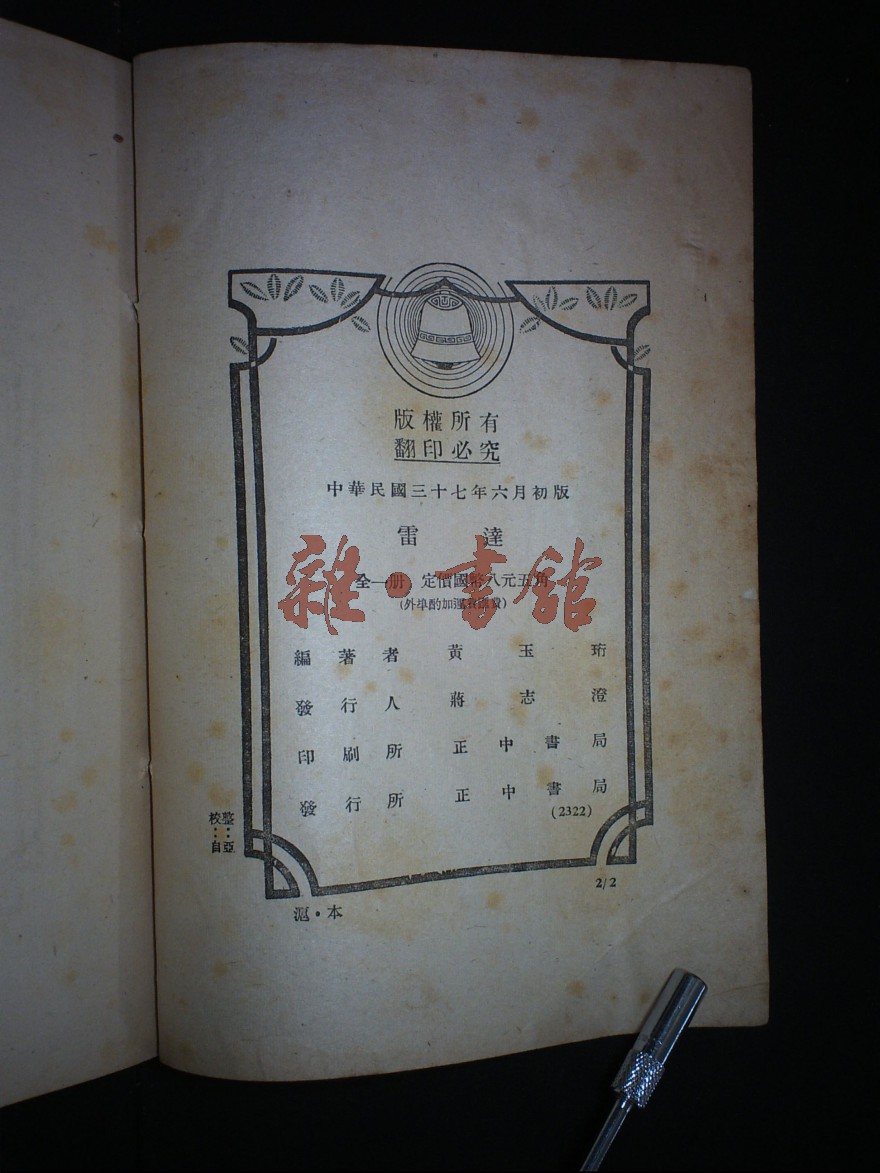 版權所有
翻印必究
中華民國三十七年六月初版
雷達
全一册 定價國幣八元五角
(外埠酌加運費滙費)
編著者 黃玉珩
發行人 蔣志澄
印刷所 正中書局
發行所 正中書局
(2322)
整：亞
校：自
2/2
滬·本
雜·書館